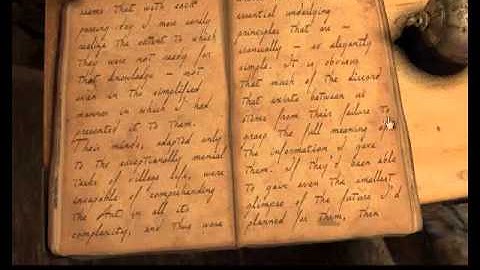 seems that with each
passing day I more sorely
realize the extent to which
they were not ready for
that knowledge – not
even in the simplified
manner in which I had
presented it to them.
Their minds, adapted only
to the exceptionally menial
tasks of village life, were
incapable of comprehending
the Art in all its
complexity, and thus were
essential underlying
principles that are –
ironically – so elegantly
simple. It is obvious
that much of the discord
that exists between us
stems from their failure to
grasp the full meaning of
the information I gave
them. If they'd been able
to gain even the smallest
glimpse of the future I'd
planned for them, then